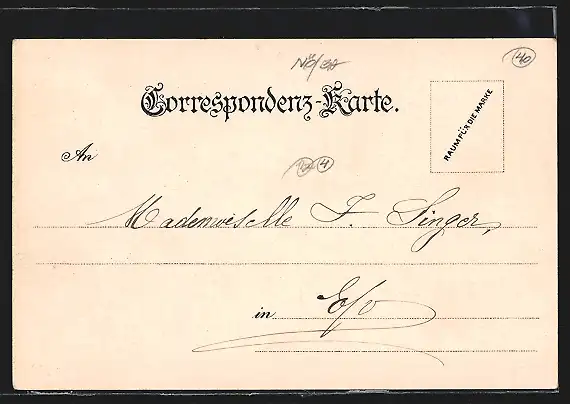 NÖ/
40
Correspondenz-Karte.
RAUM FÜR DIE MARKE
An
4
Mademoiselle F. Singer,
in E/v